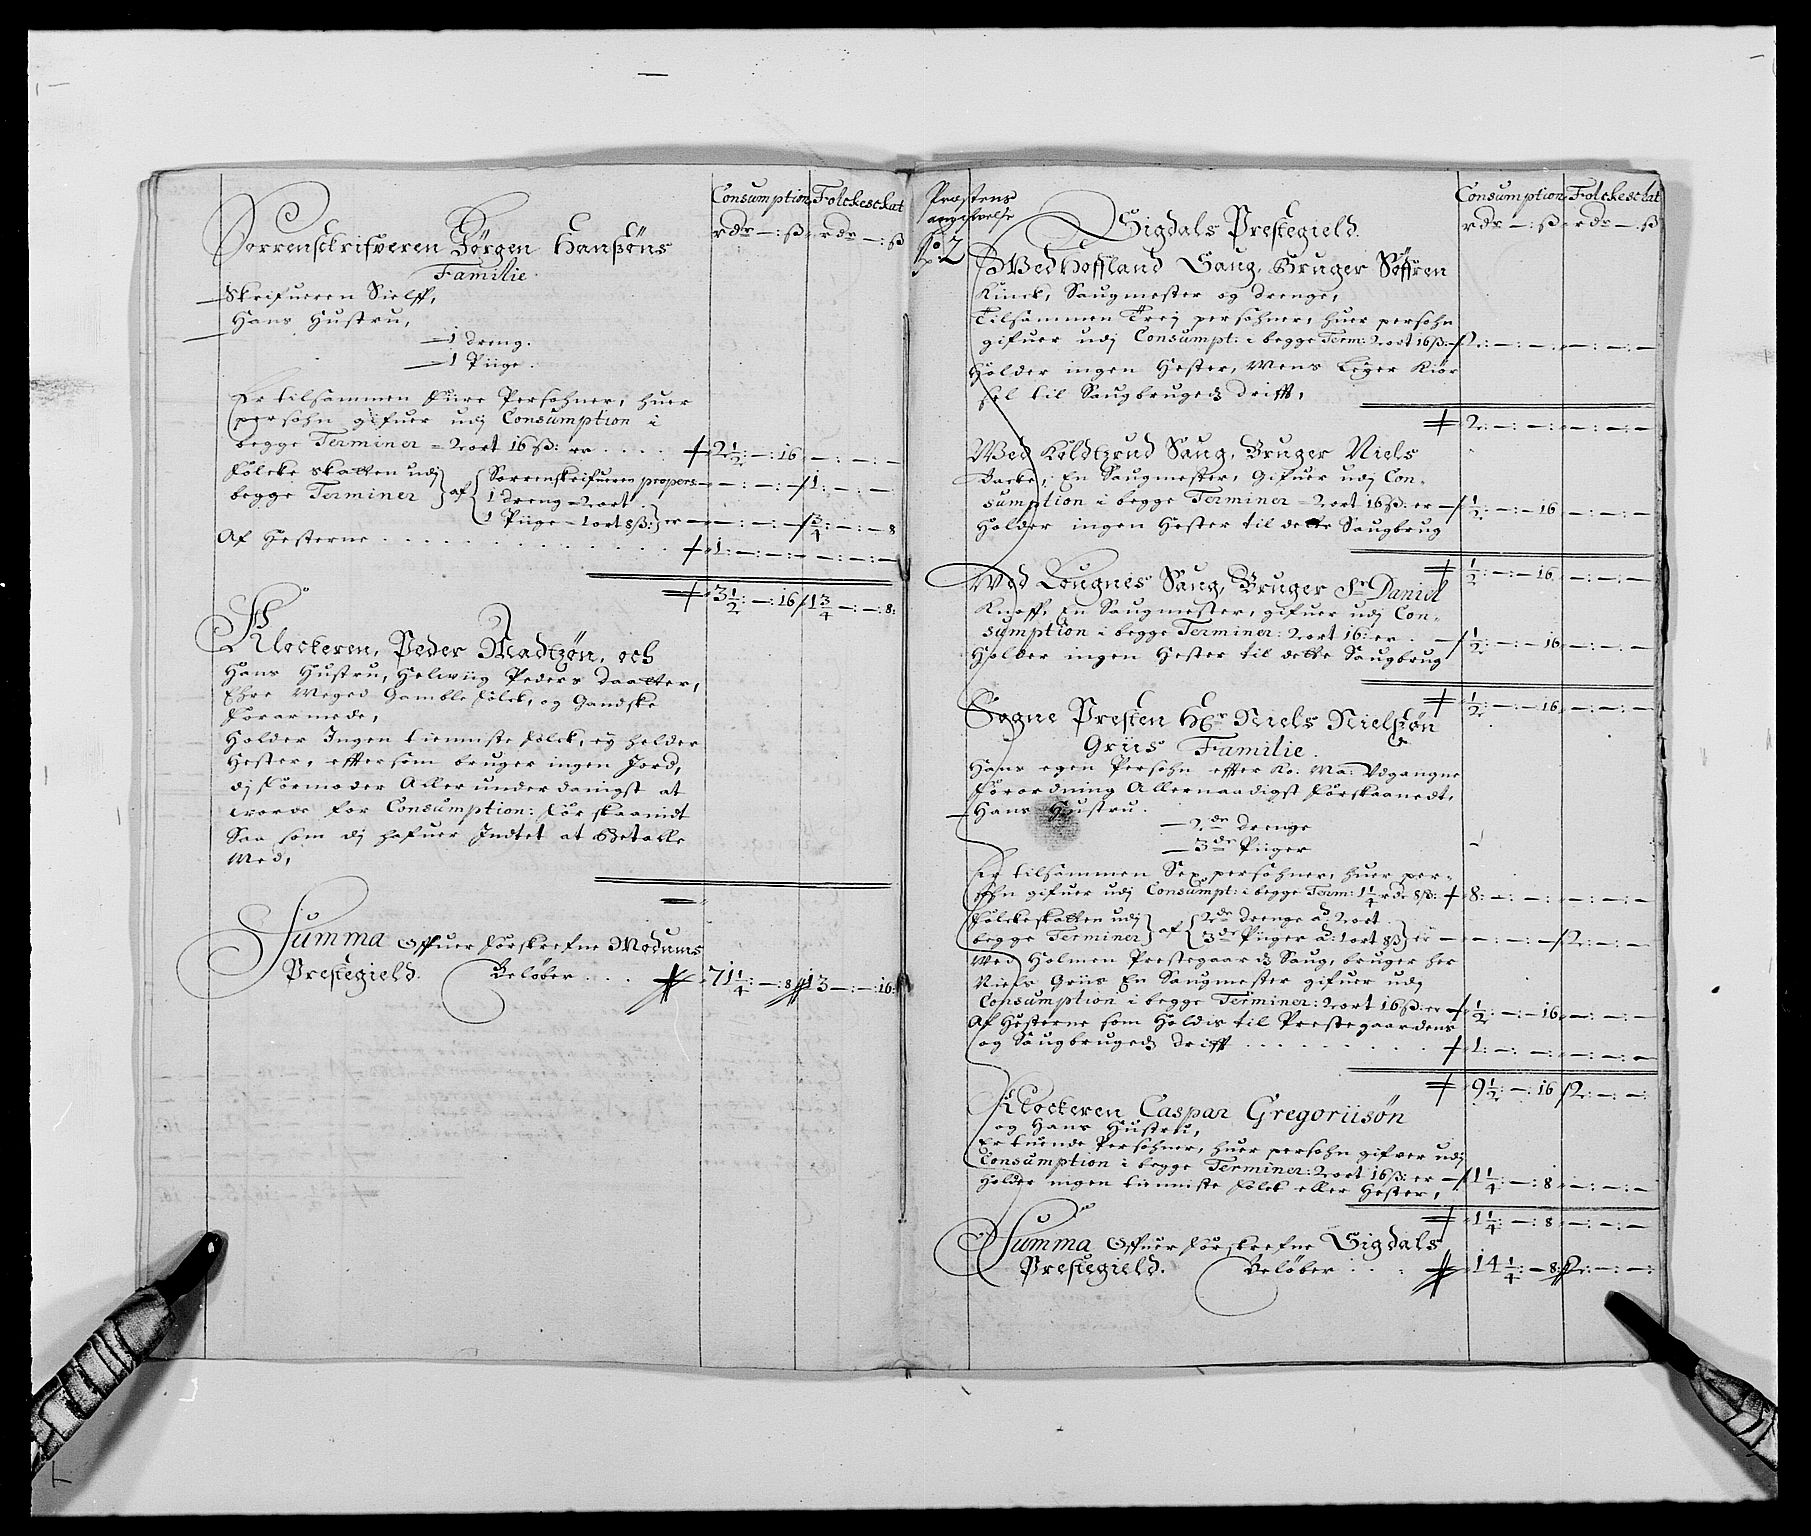 Consumption Folckeschat
rdr — : ß rdr — : ß
Sorrenschrifveren Jörgen Hanßöns
Familie
Skrifueren Sielff,
Hans Hustru,
1 dreng.
1 Piige.
Er tilsammen Fiire Persohner, huer
persohn gifuer udj Consumption i
begge Terminer = 2 ort 16 ß: er . . . . 2½: — 16 — : — : —
Folcke skatten udj begge Terminer af
Sorrenskrifueren propers: — : — : — 1: — : —
1 dreng = 2 ort
1 Piige = 1 ort 8 ß: er — : — : — ¾ — : — 8
Af Hesterne . . . . . . . 1: — : — — : — : —
3½: — : 16 1¾ — : — 8:
Klockeren, Peder Madtzøn, och
Hans Hustru, Helwiig Peders daatter,
Ehre Meged Gamble Folck, og Gandske
Forarmede,
Holder Ingen tienniste folck, ej heller
Hester, effter som bruger ingen Jord,
dj Formoder Allerunderdanigst at
worde for Consumption: Forskaanidt
Saa som dj hafuer Indtet at Betalle
Med,
Summa Offuer Forskrefne Modums
Prestegield. Beløber . . . 71¼: — : 8 13 — : — 16:
Præstens
angifwelse
No: 2
Consumption Folckeschat
rdr — : ß rdr — : ß
Sigdals Prestegield.
Wed Hoffland Saug, Bruger Söffren
Kinck, Saugmester og drenge,
Tilsammen Trej persohner, huer persohn
gifuer udj Consumpt: i begge Term: 2 ort 16 ß: 2: — : — — : — : —
Holder ingen Hester, Mens Leyer Kiör
sel til Saugbrugedß drifft,
2: — : — — : — : —
Wed Saug, Bruger Niels
Backe, En Saugmester, Gifuer udj Con-
sumption i begge Terminer = 2 ort 16 ß: er ½: — 16 — : — : —
Holder ingen Hester til dette Saugbrug
½: — 16 — : — : —
Wed Lougnes Saug, Bruger Sr Daniel
Knoff, En Saugmester, gifuer udj Con-
sumption i begge Terminer: 2 ort 16: er ½: — 16 — : — : —
Holder ingen Hester til dette Saugbrug
½: — 16 — : — : —
Sogne Presten Hr Niels Nielsøn
Griis Familie.
Hans egen Persohn effter Ko: Ma: Udgangne
Forordning Allernaadigst Forskaanedt,
Hans Hustru.
2de drenge
3de Piiger
Er tilsammen Sex persohner, huer per-
sohn gifuer udj Consumpt: i begge Term: 1¼ rdr 8 ß: 8: — : — — : — : —
Folckeskatten udj begge Terminer af
2de drenge á 2 ort
3de Piiger á: 1 ort 8 ß er — : — : — 2: — : —
Wed Holmen Prestegaards Saug, bruger her
Niels Griis En Saugmester gifuer udj
Consumption i begge Terminer: 2 ort 16 ß: er ½: — 16 — : — : —
Af Hesterne som Holdis til Prestegaardens
og Saugbrugedß drifft . . . . . 1: — : — — : — : —
9½: — 16 2: — : —
Klockeren Caspar Gregoriisøn
og Hans Hustru,
Er tuende Persohner, huer persohn gifver udj
Consumption i begge Terminer: 2 ort 16 ß: er 1¼ — : 8 — : — : —
Holder ingen tienniste folck eller Hester,
1¼: — : 8 — : — : —
Summa Offuer Forskrefne Sigdals
Prestegield. Beløber . . . 14¼: — 8: 2: — : —